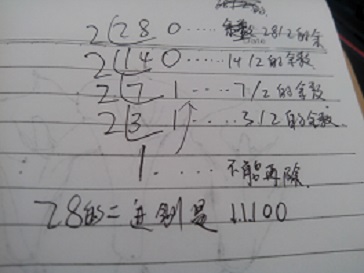 2 28 0 ...... 余数 28/2的余
2 14 0 ...... 14/2的余数
2 7 1 ..... 7/2的余数
2 3 1 ..... 3/2的余数
1 ..... 不能再除
28的二进制是 11100